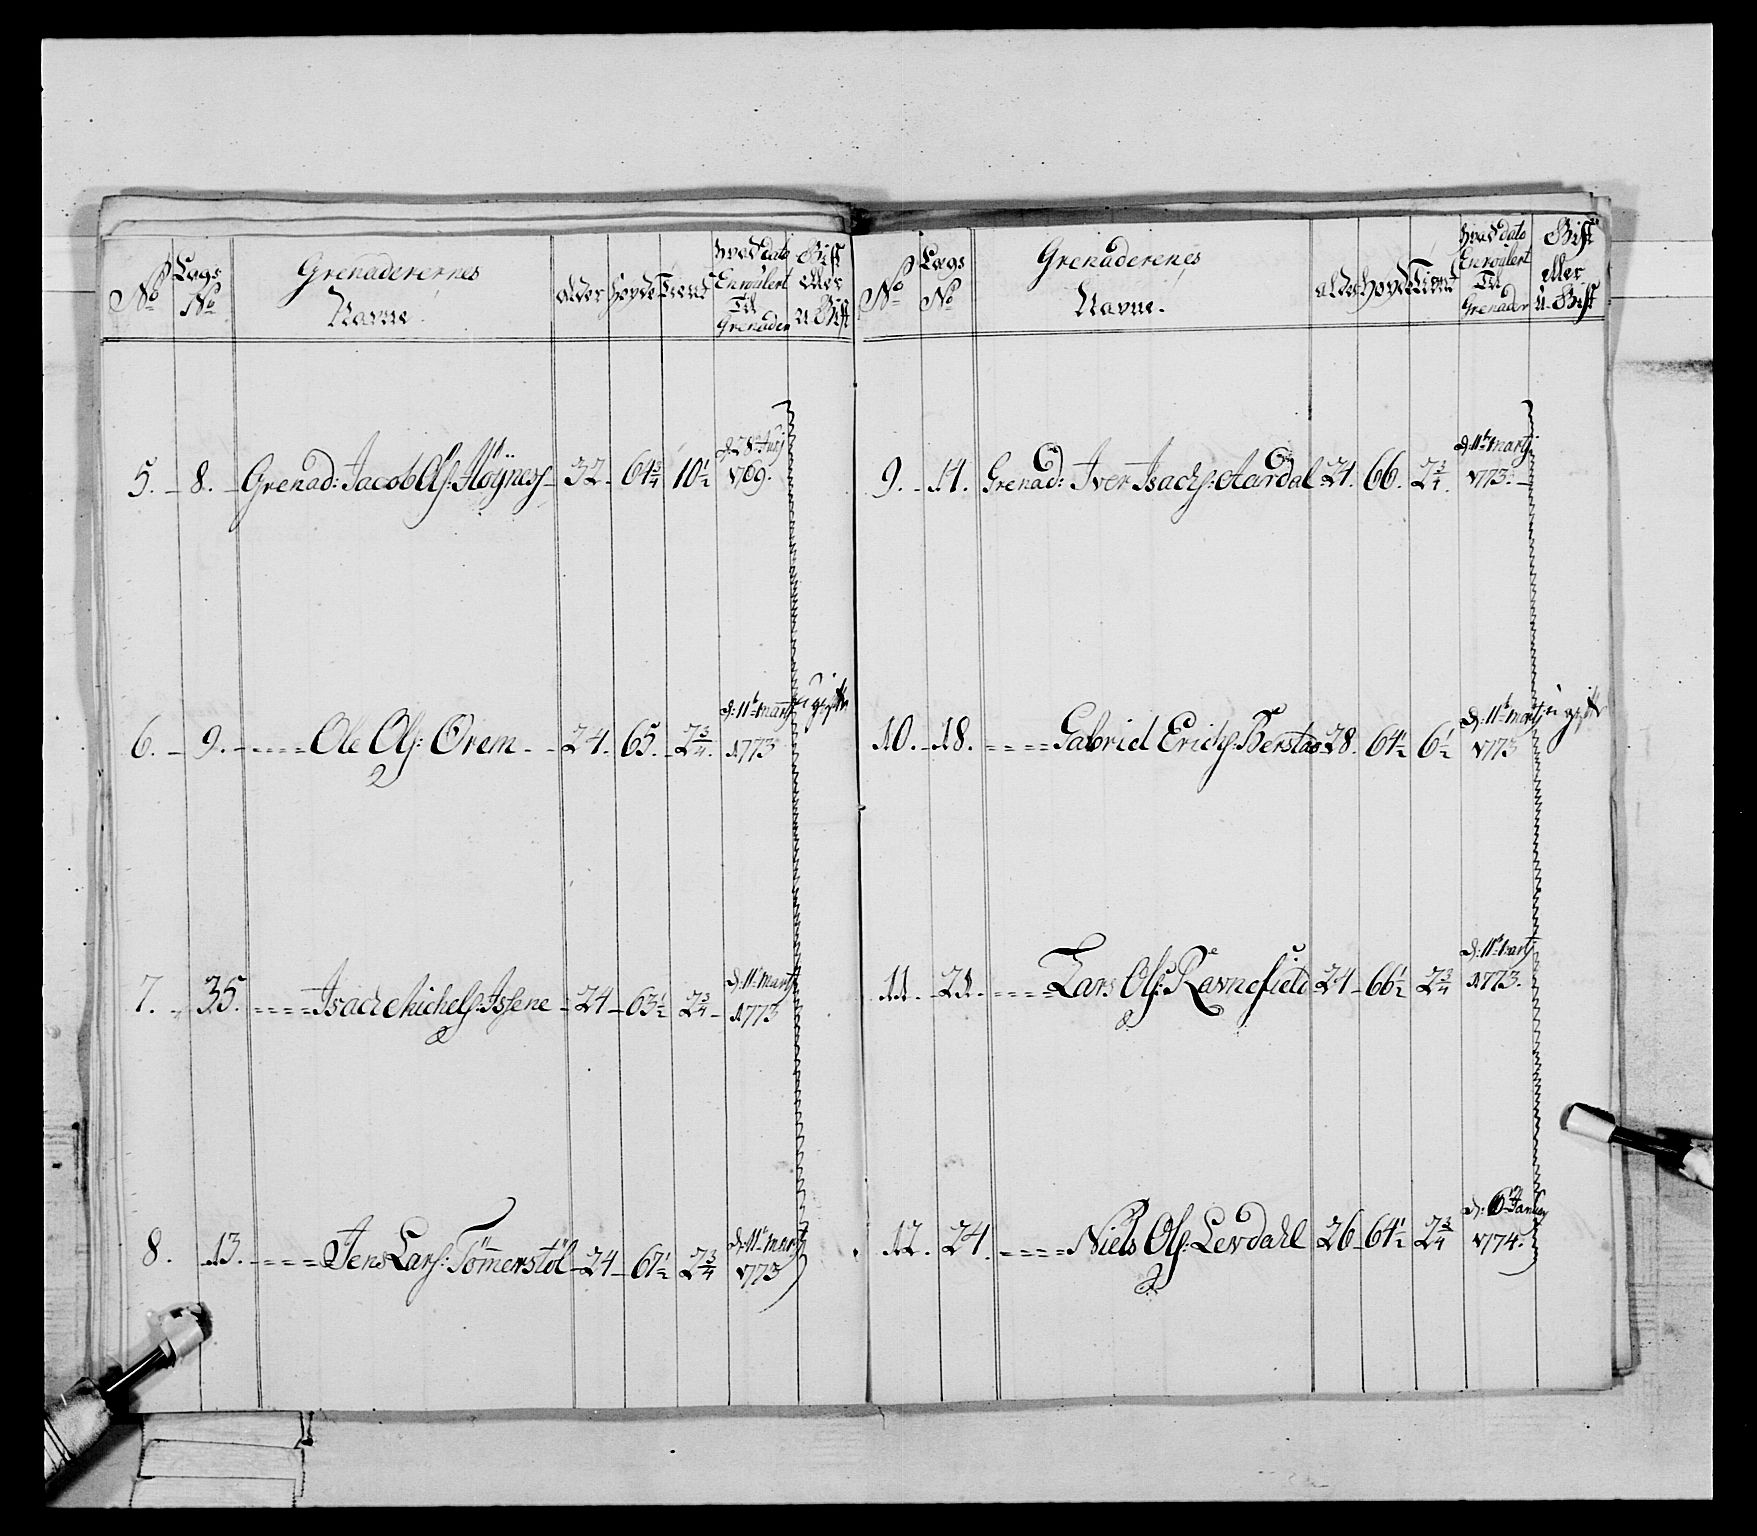 No
Lægs No
Grenaderernes Navne.
Alder
Høyde
Tienst
Hvad dato Enroulert Til Grenader
Gift eller U-Gift
5. 8. Grenad: Jacob Ols: Høynes 32. 64 3/4 10 1/2 d. 28de Junj 1769.
6. 9. Ole Ols: Orem 24. 65. 2 3/4. d: 11te Martj 1773 ugift
7. 35. Isach Michels: Issene 24 63 1/2 2 3/4 d: 11te Martj 1773
8. 13. Jens Lars: Tömerstöl 24 67 1/2 2 3/4 d: 11te Martj 1773
No
Lægs No
Grenaderenes Navne.
Alder
Høyde
Tienst
Hvad dato Enroulert Til Grenader
Gift eller U-Gift
9. 14. Grenad: Iver Isachs: Aardal 24. 66. 2 3/4. d: 11te Martj 1773.
10. 18. Gabriel Erichs: Berstad 28. 64 1/2 6 1/2 d: 11te Martj 1773 ugift
11. 21. Lars Ols: Ravnefield 24 66 1/2 2 3/4 d: 11te Martj 1773.
12. 24. Niels Ols: Levdahl 26 64 1/2 2 3/4 1774.